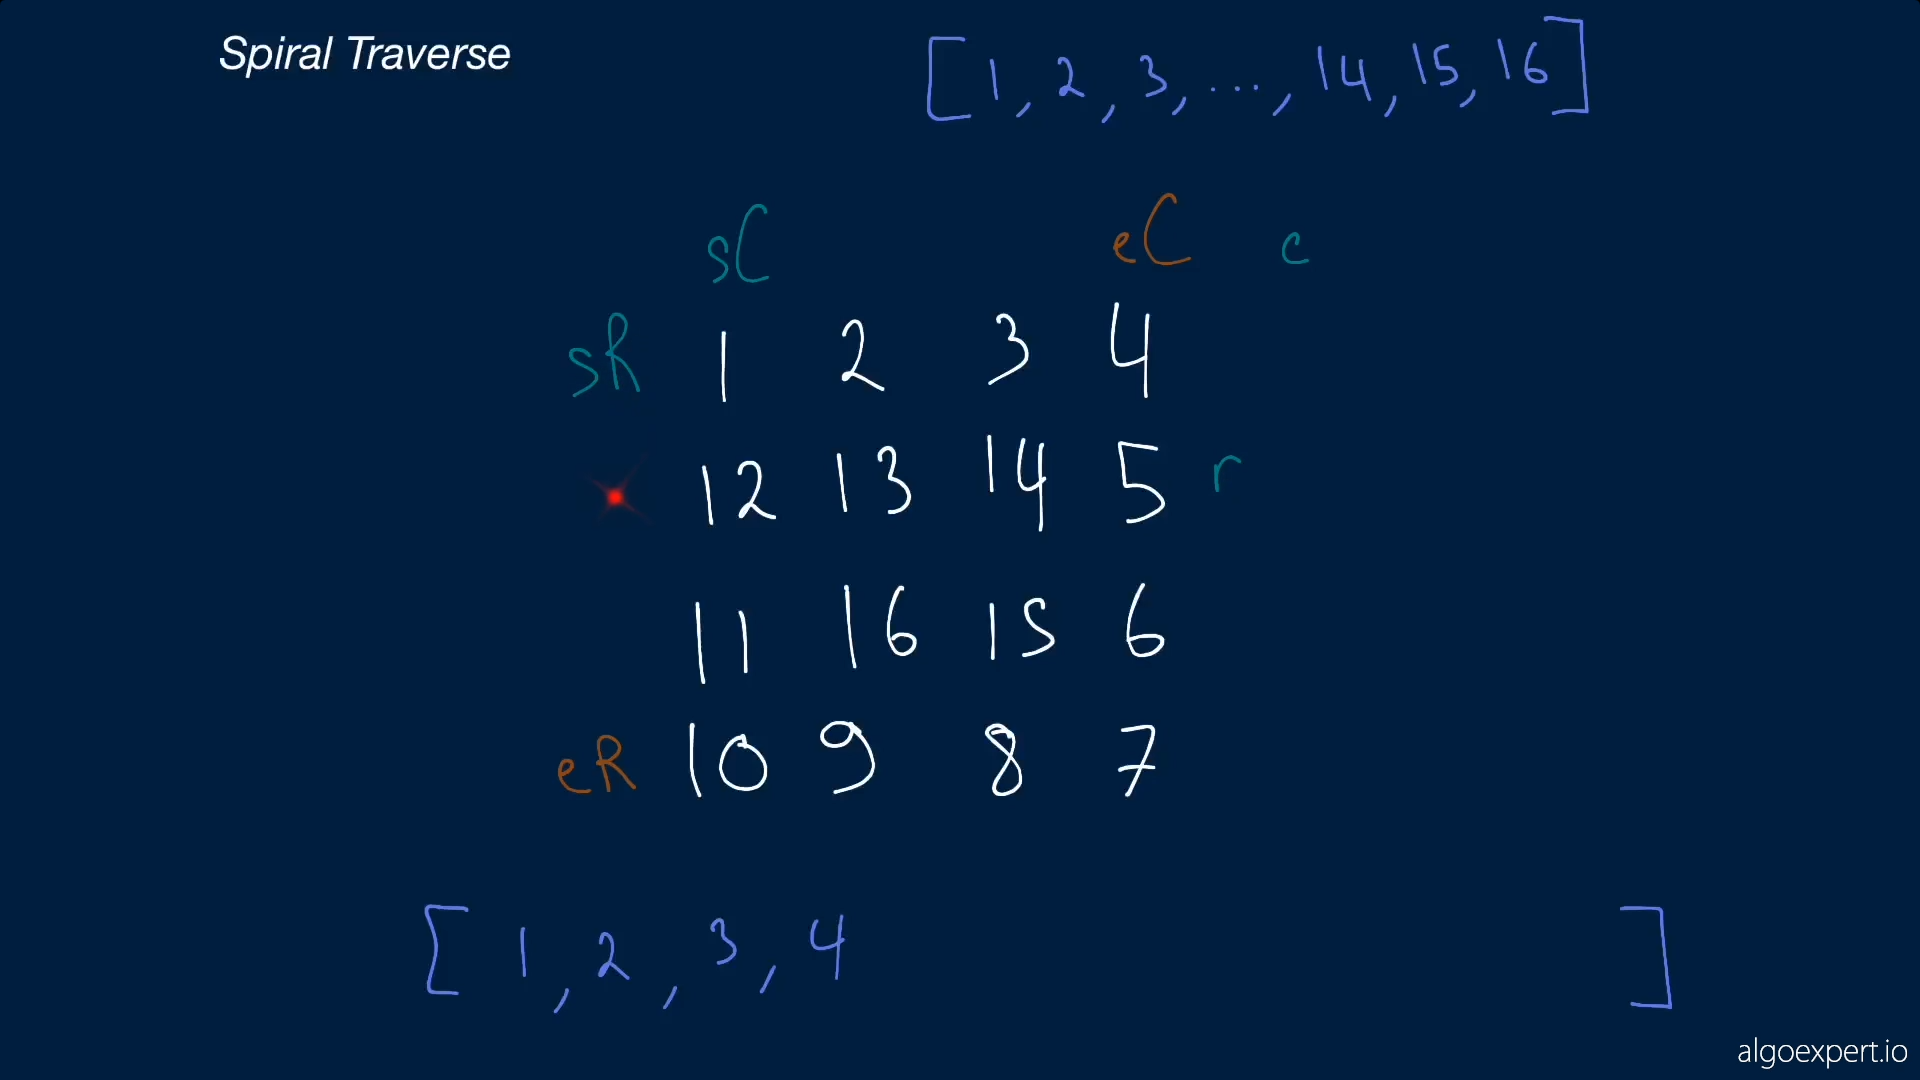 Spiral Traverse
[1, 2, 3, ..., 14, 15, 16]
sC eC c
sR 1 2 3 4
12 13 14 5 r
11 16 15 6
eR 10 9 8 7
[1, 2, 3, 4 ]
algoexpert.io